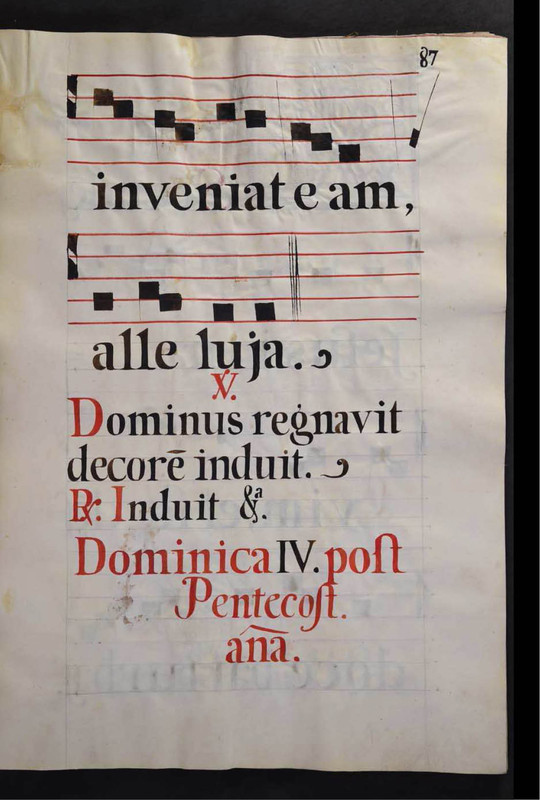 87
inveniat eam,
alle luja.
℣.
Dominus regnavit
decorē induit.
℟: Induit &ª.
Dominica IV. poſt
Pentecoſt.
anã.